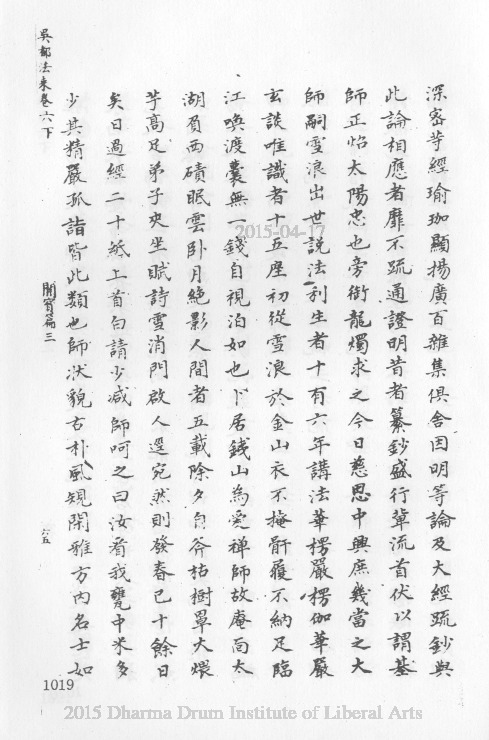 吳都法乘卷六下
深密等經瑜珈顯揚廣百雜集俱舍因明等論及大經疏鈔與
此論相應者靡不疏通證明昔者纂鈔盛行輩流首伏以謂基
師正炤太陽忠也旁銜龍燭求之今日慈恩中興庶幾當之大
師嗣雪浪出世說法利生者十有六年講法華楞嚴楞伽華嚴
玄談唯識者十五座初從雪浪於金山衣不掩骭履不納足臨
江喚渡囊無一錢自視泊如也卜居錢山為愛禪師故庵面太
湖肩西磧眠雲卧月絕影人間者五載除夕自斧枯樹單大煨
芋高足弟子夾坐賦詩雪消門啟人逕宛然則發春已十餘日
矣日過經二十紙上首白請少減師呵之曰汝看我甕中米多
少其精嚴孤詣皆此類也師狀貌古朴風規閑雅方內名士如
開賓篇三
六五
1019
2015-04-17
2015 Dharma Drum Institute of Liberal Arts